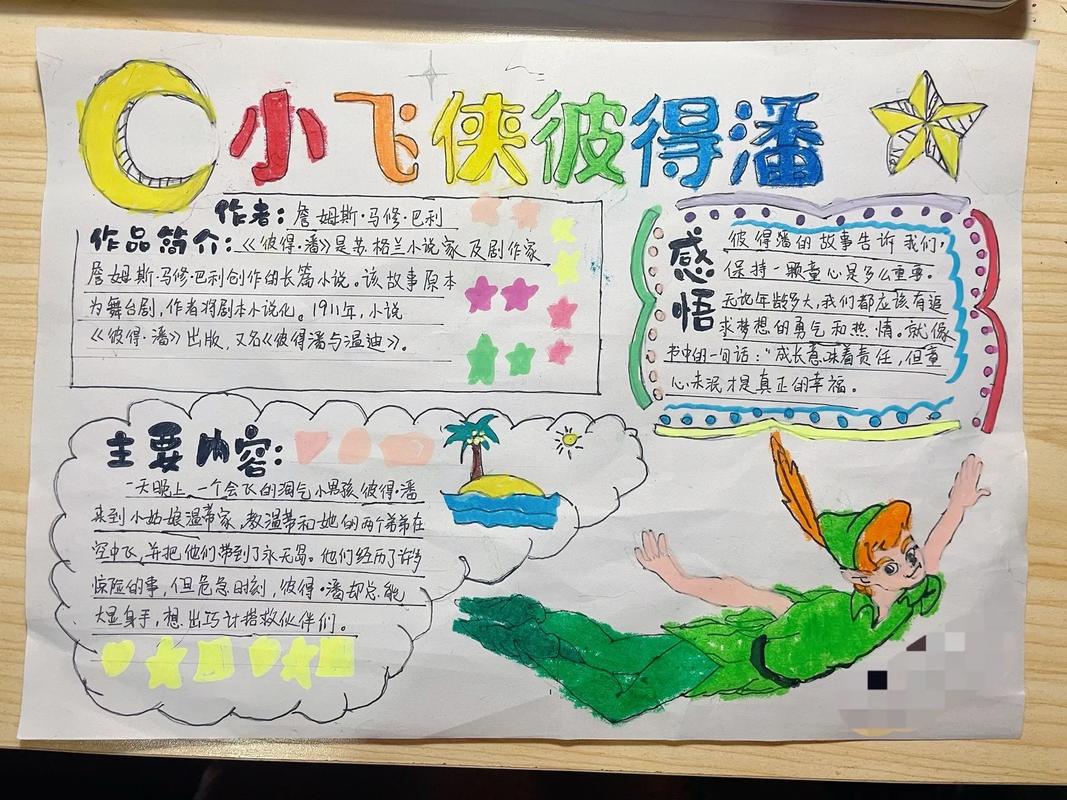 小飞侠彼得潘
作者：詹姆斯·马修·巴利
作品简介：《彼得·潘》是苏格兰小说家及剧作家
詹姆斯·马修·巴利创作的长篇小说。该故事原本
为舞台剧，作者将剧本小说化。1911年，小说
《彼得·潘》出版，又名《彼得潘与温迪》。
感悟
彼得潘的故事告诉我们，
保持一颗童心是多么重要。
无论年龄多大，我们都应该有追
求梦想的勇气和热情。就像
书中的一句话：“成长意味着责任，但童
心未泯才是真正的幸福。
主要内容：
一天晚上，一个会飞的淘气小男孩彼得·潘
来到小姑娘温蒂家，教温蒂和她的两个弟弟在
空中飞，并把他们带到了永无岛。他们经历了许多
惊险的事，但危急时刻，彼得·潘却总能
大显身手，想出巧计搭救伙伴们。